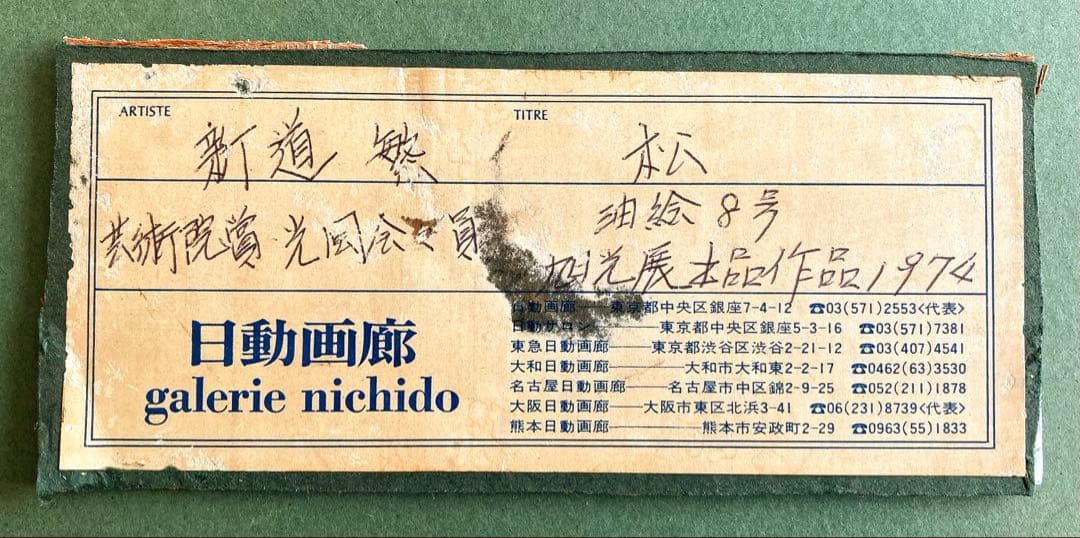 ARTISTE
新道 繁
TITRE
松
芸術院賞 光風会会員
油絵 8号
光展 本品作品 1974
日動画廊
galerie nichido
日動画廊——東京都中央区銀座7-4-12 ☎03(571)2553<代表>
日動サロン————東京都中央区銀座5-3-16 ☎03(571)7381
東急日動画廊——東京都渋谷区渋谷2-21-12 ☎03(407)4541
大和日動画廊————大和市大和東2-2-17 ☎0462(63)3530
名古屋日動画廊——名古屋市中区錦2-9-25 ☎052(211)1878
大阪日動画廊——大阪市東区北浜3-41 ☎06(231)8739<代表>
熊本日動画廊————熊本市安政町2-29 ☎0963(55)1833